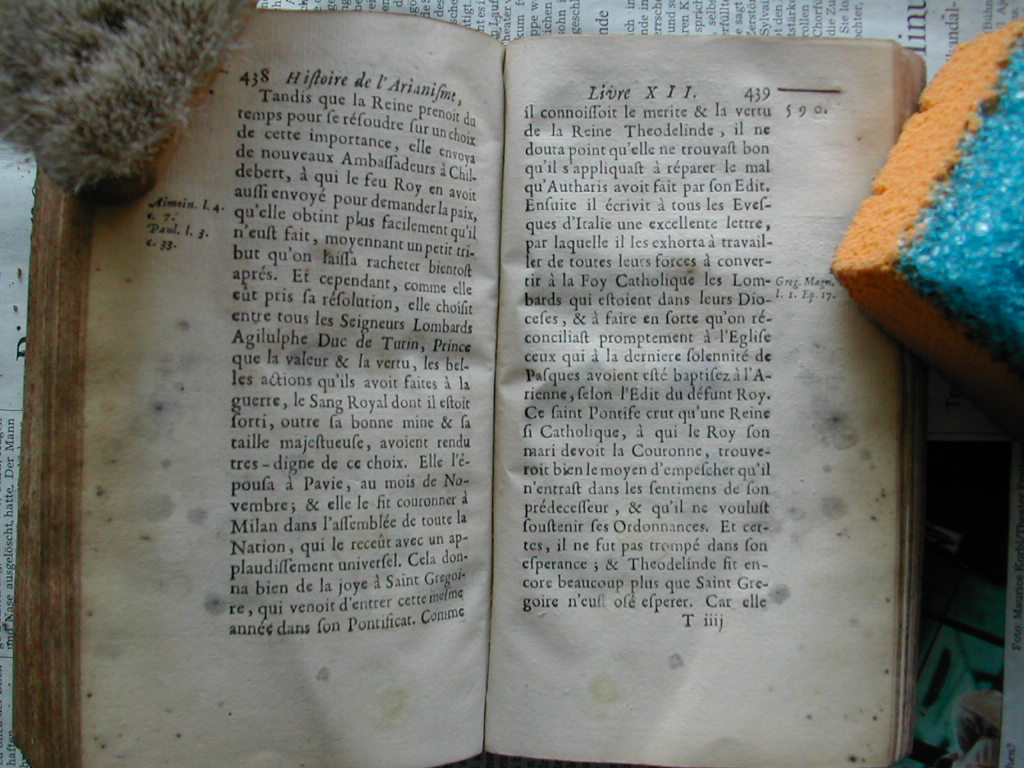 438 Hiſtoire de l'Arianiſme,
Tandis que la Reine prenoit du
temps pour ſe réſoudre ſur un choix
de cette importance, elle envoya
de nouveaux Ambaſſadeurs à Chil-
debert, à qui le feu Roy en avoit
auſſi envoyé pour demander la paix,
qu'elle obtint plus facilement qu'il
n'euſt fait, moyennant un petit tri-
but qu'on laiſſa racheter bientoſt
aprés. Et cependant, comme elle
eût pris ſa réſolution, elle choiſit
entre tous les Seigneurs Lombards
Agilulphe Duc de Turin, Prince
que la valeur & la vertu, les bel-
les actions qu'ils avoit faites à la
guerre, le Sang Royal dont il eſtoit
ſorti, outre ſa bonne mine & ſa
taille majeſtueuſe, avoient rendu
tres-digne de ce choix. Elle l'é-
pouſa à Pavie, au mois de No-
vembre; & elle le fit couronner à
Milan dans l'aſſemblée de toute la
Nation, qui le receût avec un ap-
plaudiſſement univerſel. Cela don-
na bien de la joye à Saint Gregoi-
re, qui venoit d'entrer cette meſme
année dans ſon Pontificat. Comme
Aimoin. l. 4.
c. 7.
Paul. l. 3.
c. 33.
Livre XII. 439
il connoiſſoit le merite & la vertu
de la Reine Theodelinde, il ne
douta point qu'elle ne trouvaſt bon
qu'il s'appliquaſt à réparer le mal
qu'Autharis avoit fait par ſon Edit.
Enſuite il écrivit à tous les Eveſ-
ques d'Italie une excellente lettre,
par laquelle il les exhorta à travail-
ler de toutes leurs forces à conver-
tir à la Foy Catholique les Lom-
bards qui eſtoient dans leurs Dio-
ceſes, & à faire en ſorte qu'on ré-
conciliaſt promptement à l'Egliſe
ceux qui à la derniere ſolennité de
Paſques avoient eſté baptiſez à l'A-
rienne, ſelon l'Edit du défunt Roy.
Ce ſaint Pontife crut qu'une Reine
ſi Catholique, à qui le Roy ſon
mari devoit la Couronne, trouve-
roit bien le moyen d'empeſcher qu'il
n'entraſt dans les ſentimens de ſon
prédeceſſeur, & qu'il ne vouluſt
ſouſtenir ſes Ordonnances. Et cer-
tes, il ne fut pas trompé dans ſon
eſperance; & Theodelinde fit en-
core beaucoup plus que Saint Gre-
goire n'euſt oſé eſperer. Car elle
T iiij
590.
Greg. Magn.
l. 1. Ep. 17.